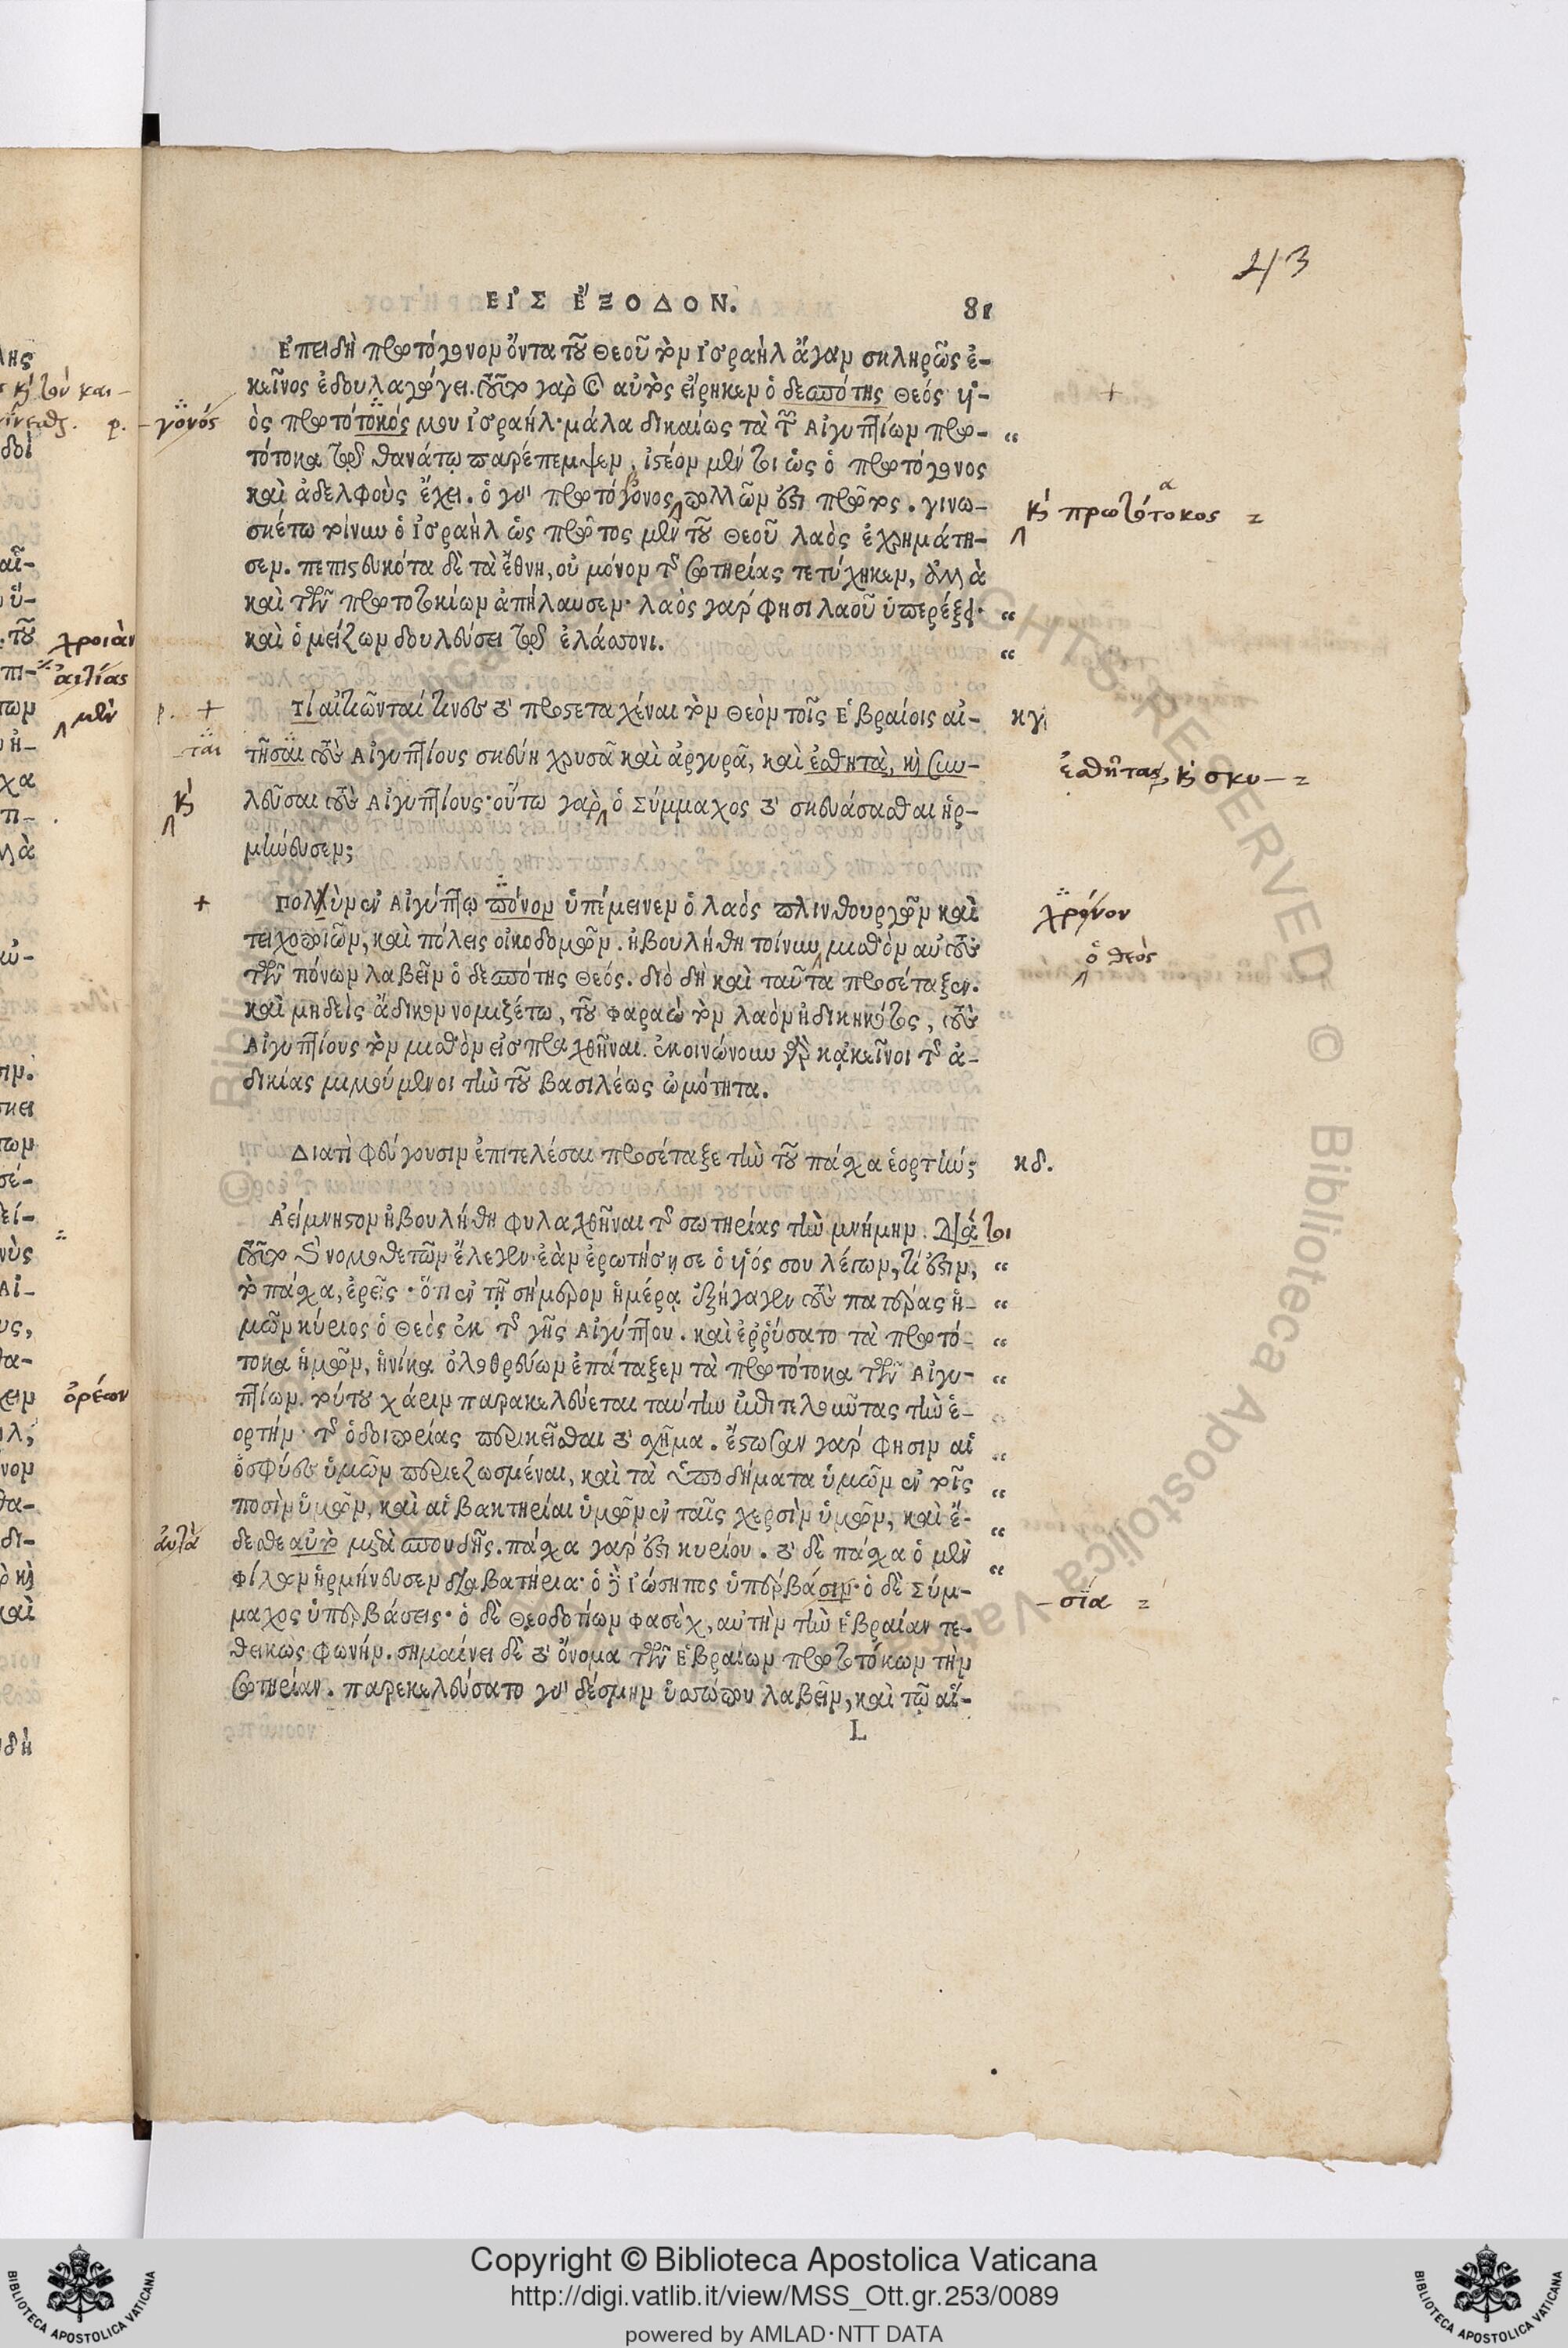 213
ΕΙ᾿Σ Ε῎ΞΟΔΟΝ. 81
Ἐπειδὴ πρωτόγονον ὄντα τοῦ Θεοῦ τὸν Ἰσραὴλ ἄγαν σκληρῶς ἐ-
κεῖνος ἐδουλαγώγει. τοῦτο γὰρ καὶ αὐτὸς εἴρηκεν ὁ δεσπότης Θεός υἱ-
ὸς πρωτότοκός μου Ἰσραήλ· μάλα δικαίως τὰ τῶν Αἰγυπτίων πρω- “
τότοκα τῷ θανάτῳ παρέπεμψεν. ἰστέον μέντοι ὡς ὁ πρωτόγονος
καὶ ἀδελφοὺς ἔχει. ὁ γὰρ πρωτόγονος πολλῶν ἐστι πρῶτος. γινω-
σκέτω τοίνυν ὁ Ἰσραὴλ ὡς πρῶτος μὲν τοῦ Θεοῦ λαὸς ἐχρημάτι-
σεν. πεπιστευκότα δὲ τὰ ἔθνη, οὐ μόνον τῆς σωτηρίας τετύχηκεν, ἀλλὰ
καὶ τῶν πρωτοτοκίων ἀπήλαυσεν· λαὸς γάρ φησι λαοῦ ὑπερέξει· “
καὶ ὁ μείζων δουλεύσει τῷ ἐλάσσονι. “
Τί αἰτιῶνταί τινες τὸ προστεταχέναι τὸν Θεὸν τοῖς Ἑβραίοις αἰ- κγ
τῆσαι τοὺς Αἰγυπτίους σκεύη χρυσᾶ καὶ ἀργυρᾶ, καὶ ἐσθητὰ, καὶ συν-
λεῦσαι τοὺς Αἰγυπτίους· οὕτω γὰρ ὁ Σύμμαχος τὸ σκευάσασθαι ἡρ-
μήνευσεν;
Πολλὺν ἐν Αἰγύπτῳ πόνον ὑπέμεινεν ὁ λαός πλινθουργῶν καὶ
τειχοποιῶν, καὶ πόλεις οἰκοδομῶν. ἠβουλήθη τοίνυν μισθὸν αὐτοὺς
τῶν πόνων λαβεῖν ὁ δεσπότης Θεός. διὸ δὴ καὶ ταῦτα προσέταξεν.
καὶ μηδεὶς ἄδικον νομιζέτω, τοῦ Φαραὼ τὸν λαὸν ἠδικηκότος, τοὺς
Αἰγυπτίους τὸν μισθὸν εἰσπραχθῆναι. ἐκοινώνουν γὰρ κἀκεῖνοι τῆς ἀ-
δικίας μιμούμενοι τὴν τοῦ βασιλέως ὠμότητα.
Διατί φεύγουσιν ἐπιτελέσαι προσέταξε τὴν τοῦ πάσχα ἑορτήν; κδ.
Ἀείμνηστον ἠβουλήθη φυλαχθῆναι τῆς σωτηρίας τὴν μνήμην. διά τοι
τοῦτο καὶ νομοθετῶν ἔλεγεν· ἐὰν ἐρωτήσῃ σε ὁ υἱός σου λέγων, τί ἐστιν, “
τὸ πάσχα, ἐρεῖς · ὅτι ἐν τῇ σήμερον ἡμέρᾳ ἐξήγαγεν τοὺς πατέρας ἡ- “
μῶν κύριος ὁ Θεὸς ἐκ τῆς γῆς Αἰγύπτου. καὶ ἐρρύσατο τὰ πρωτό- “
τοκα ἡμῶν, ἡνίκα ὀλοθρεύων ἐπάταξεν τὰ πρωτότοκα τῶν Αἰγυ- “
πτίων. τούτου χάριν παρακελεύεται ταύτην ἐπιτελοῦντας τὴν ἑ- “
ορτὴν· τῆς ὁδοιπορίας περικεῖσθαι τὸ σχῆμα. ἔστωσαν γάρ φησιν αἱ “
ὀσφύες ὑμῶν περιεζωσμέναι, καὶ τὰ ὑποδήματα ὑμῶν ἐν τοῖς “
ποσὶν ὑμῶν, καὶ αἱ βακτηρίαι ὑμῶν ἐν ταῖς χερσὶν ὑμῶν, καὶ ἔ- “
δεσθε αὐτὸ μετὰ σπουδῆς. πάσχα γάρ ἐστι κυρίου. τὸ δὲ πάσχα ὁ μὲν “
Φίλων ἡρμήνευσεν διαβατήρια· ὁ δὲ Ἰώσηπος ὑπέρβασιν· ὁ δὲ Σύμ-
μαχος ὑπερβάσεις· ὁ δὲ Θεοδοτίων Φασὲχ, αὐτὴν τὴν Ἑβραίαν τε-
θεικὼς φωνήν. σημαίνει δὲ τὸ ὄνομα τῶν Ἑβραίων πρωτοτόκων τὴν
σωτηρίαν. παρεκελεύσατο γὰρ δέσμην ὑσσώπου λαβεῖν, καὶ τῷ αἵ-
L
-γονός
+
καὶ πρωτότοκος
+
-ται
ἐσθῆτας, καὶ σκυ-
καὶ
+
χρόνον
ὁ θεὸς
αὐτὰ
-σία
χροιὰν
αἰτίας
μὲν
ὀρέων
Copyright © Biblioteca Apostolica Vaticana
http://digi.vatlib.it/view/MSS_Ott.gr.253/0089
powered by AMLAD·NTT DATA
BIBLIOTECA APOSTOLICA VATICANA
BIBLIOTECA APOSTOLICA VATICANA